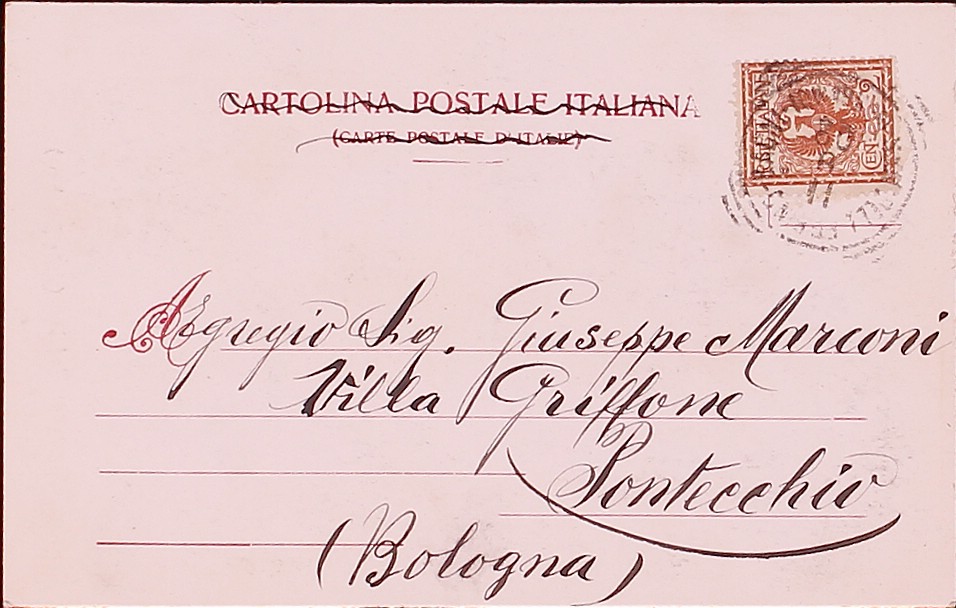 CARTOLINA POSTALE ITALIANA
(CARTE POSTALE D'ITALIE)
Egregio Sig. Giuseppe Marconi
Villa Griffone
Pontecchio
(Bologna)